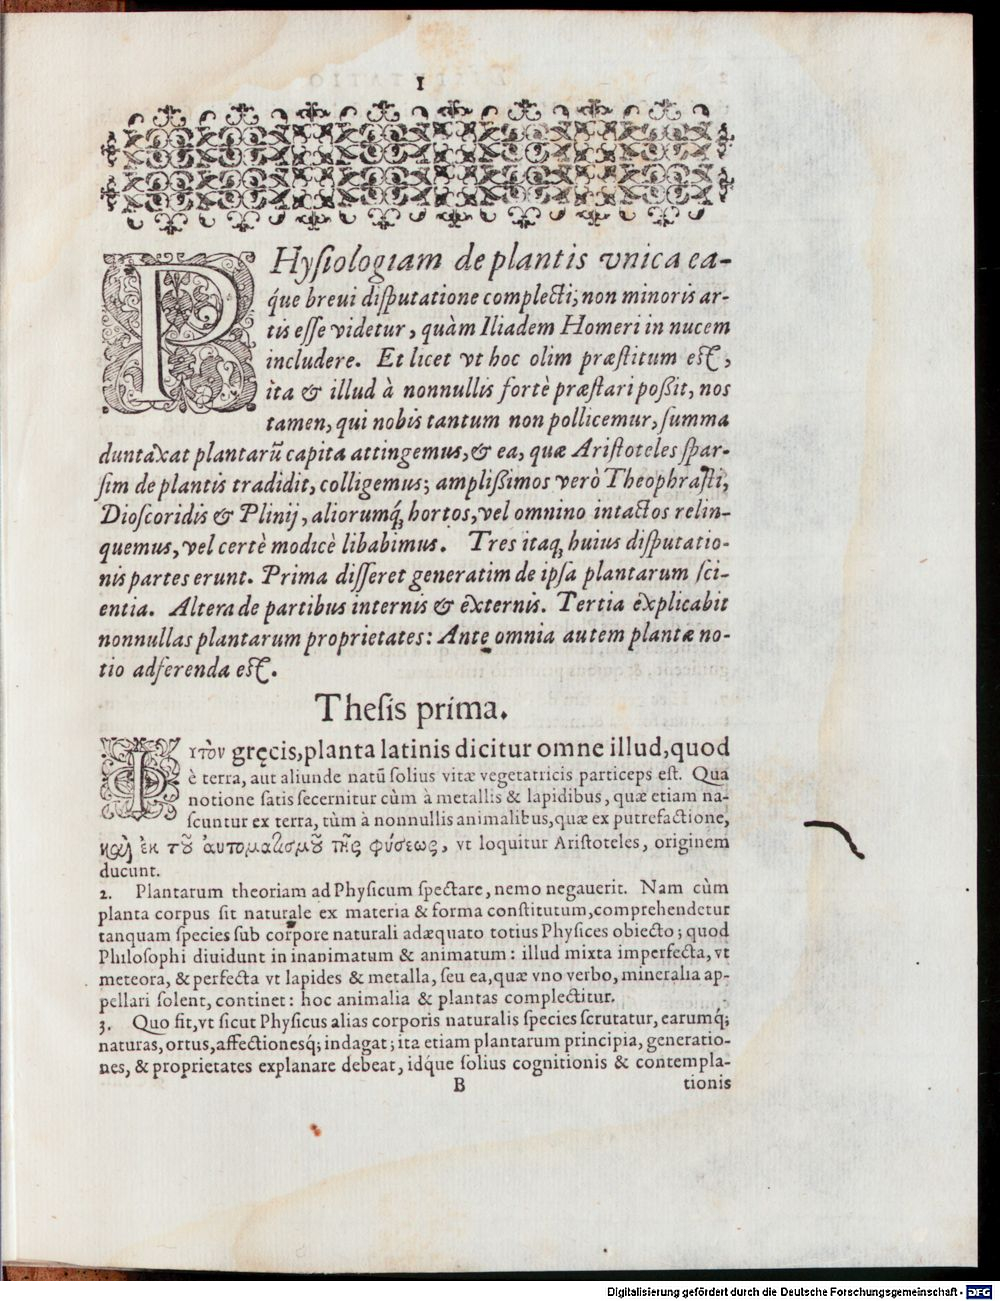 1
PHysiologiam de plantis vnica ea-
q́ue breui disputatione complecti, non minoris ar-
tis esse videtur, quàm Iliadem Homeri in nucem
includere. Et licet vt hoc olim præstitum est,
ita & illud à nonnullis fortè præstari poßit, nos
tamen, qui nobis tantum non pollicemur, summa
duntaxat plantarũ capita attingemus, & ea, quæ Aristoteles spar-
sim de plantis tradidit, colligemus; amplißimos verò Theophrasti,
Dioscoridis & Plinij, aliorumq́; hortos, vel omnino intactos relin-
quemus, vel certè modicè libabimus. Tres itaq; huius disputatio-
nis partes erunt. Prima disseret generatim de ipsa plantarum sci-
entia. Altera de partibus internis & externis. Tertia explicabit
nonnullas plantarum proprietates: Ante omnia autem plantæ no-
tio adferenda est.
Thesis prima.
Φιτὸν gręcis, planta latinis dicitur omne illud, quod
è terra, aut aliunde natũ solius vitæ vegetatricis particeps est. Qua
notione satis secernitur cùm à metallis & lapidibus, quæ etiam na-
scuntur ex terra, tùm à nonnullis animalibus, quæ ex putrefactione,
καὶ ἐκ τοῦ ἀυτοματισμοῦ τῆς φύσεως, vt loquitur Aristoteles, originem
ducunt.
2. Plantarum theoriam ad Physicum spectare, nemo negauerit. Nam cùm
planta corpus sit naturale ex materia & forma constitutum, comprehendetur
tanquam species sub corpore naturali adæquato totius Physices obiecto; quod
Philosophi diuidunt in inanimatum & animatum: illud mixta imperfecta, vt
meteora, & perfecta vt lapides & metalla, seu ea, quæ vno verbo, mineralia ap-
pellari solent, continet: hoc animalia & plantas complectitur.
3. Quo fit, vt sicut Physicus alias corporis naturalis species scrutatur, earumq́;
naturas, ortus, affectionesq́; indagat; ita etiam plantarum principia, generatio-
nes, & proprietates explanare debeat, idq́ue solius cognitionis & contempla-
B tionis
Digitalisierung gefördert durch die Deutsche Forschungsgemeinschaft - DFG